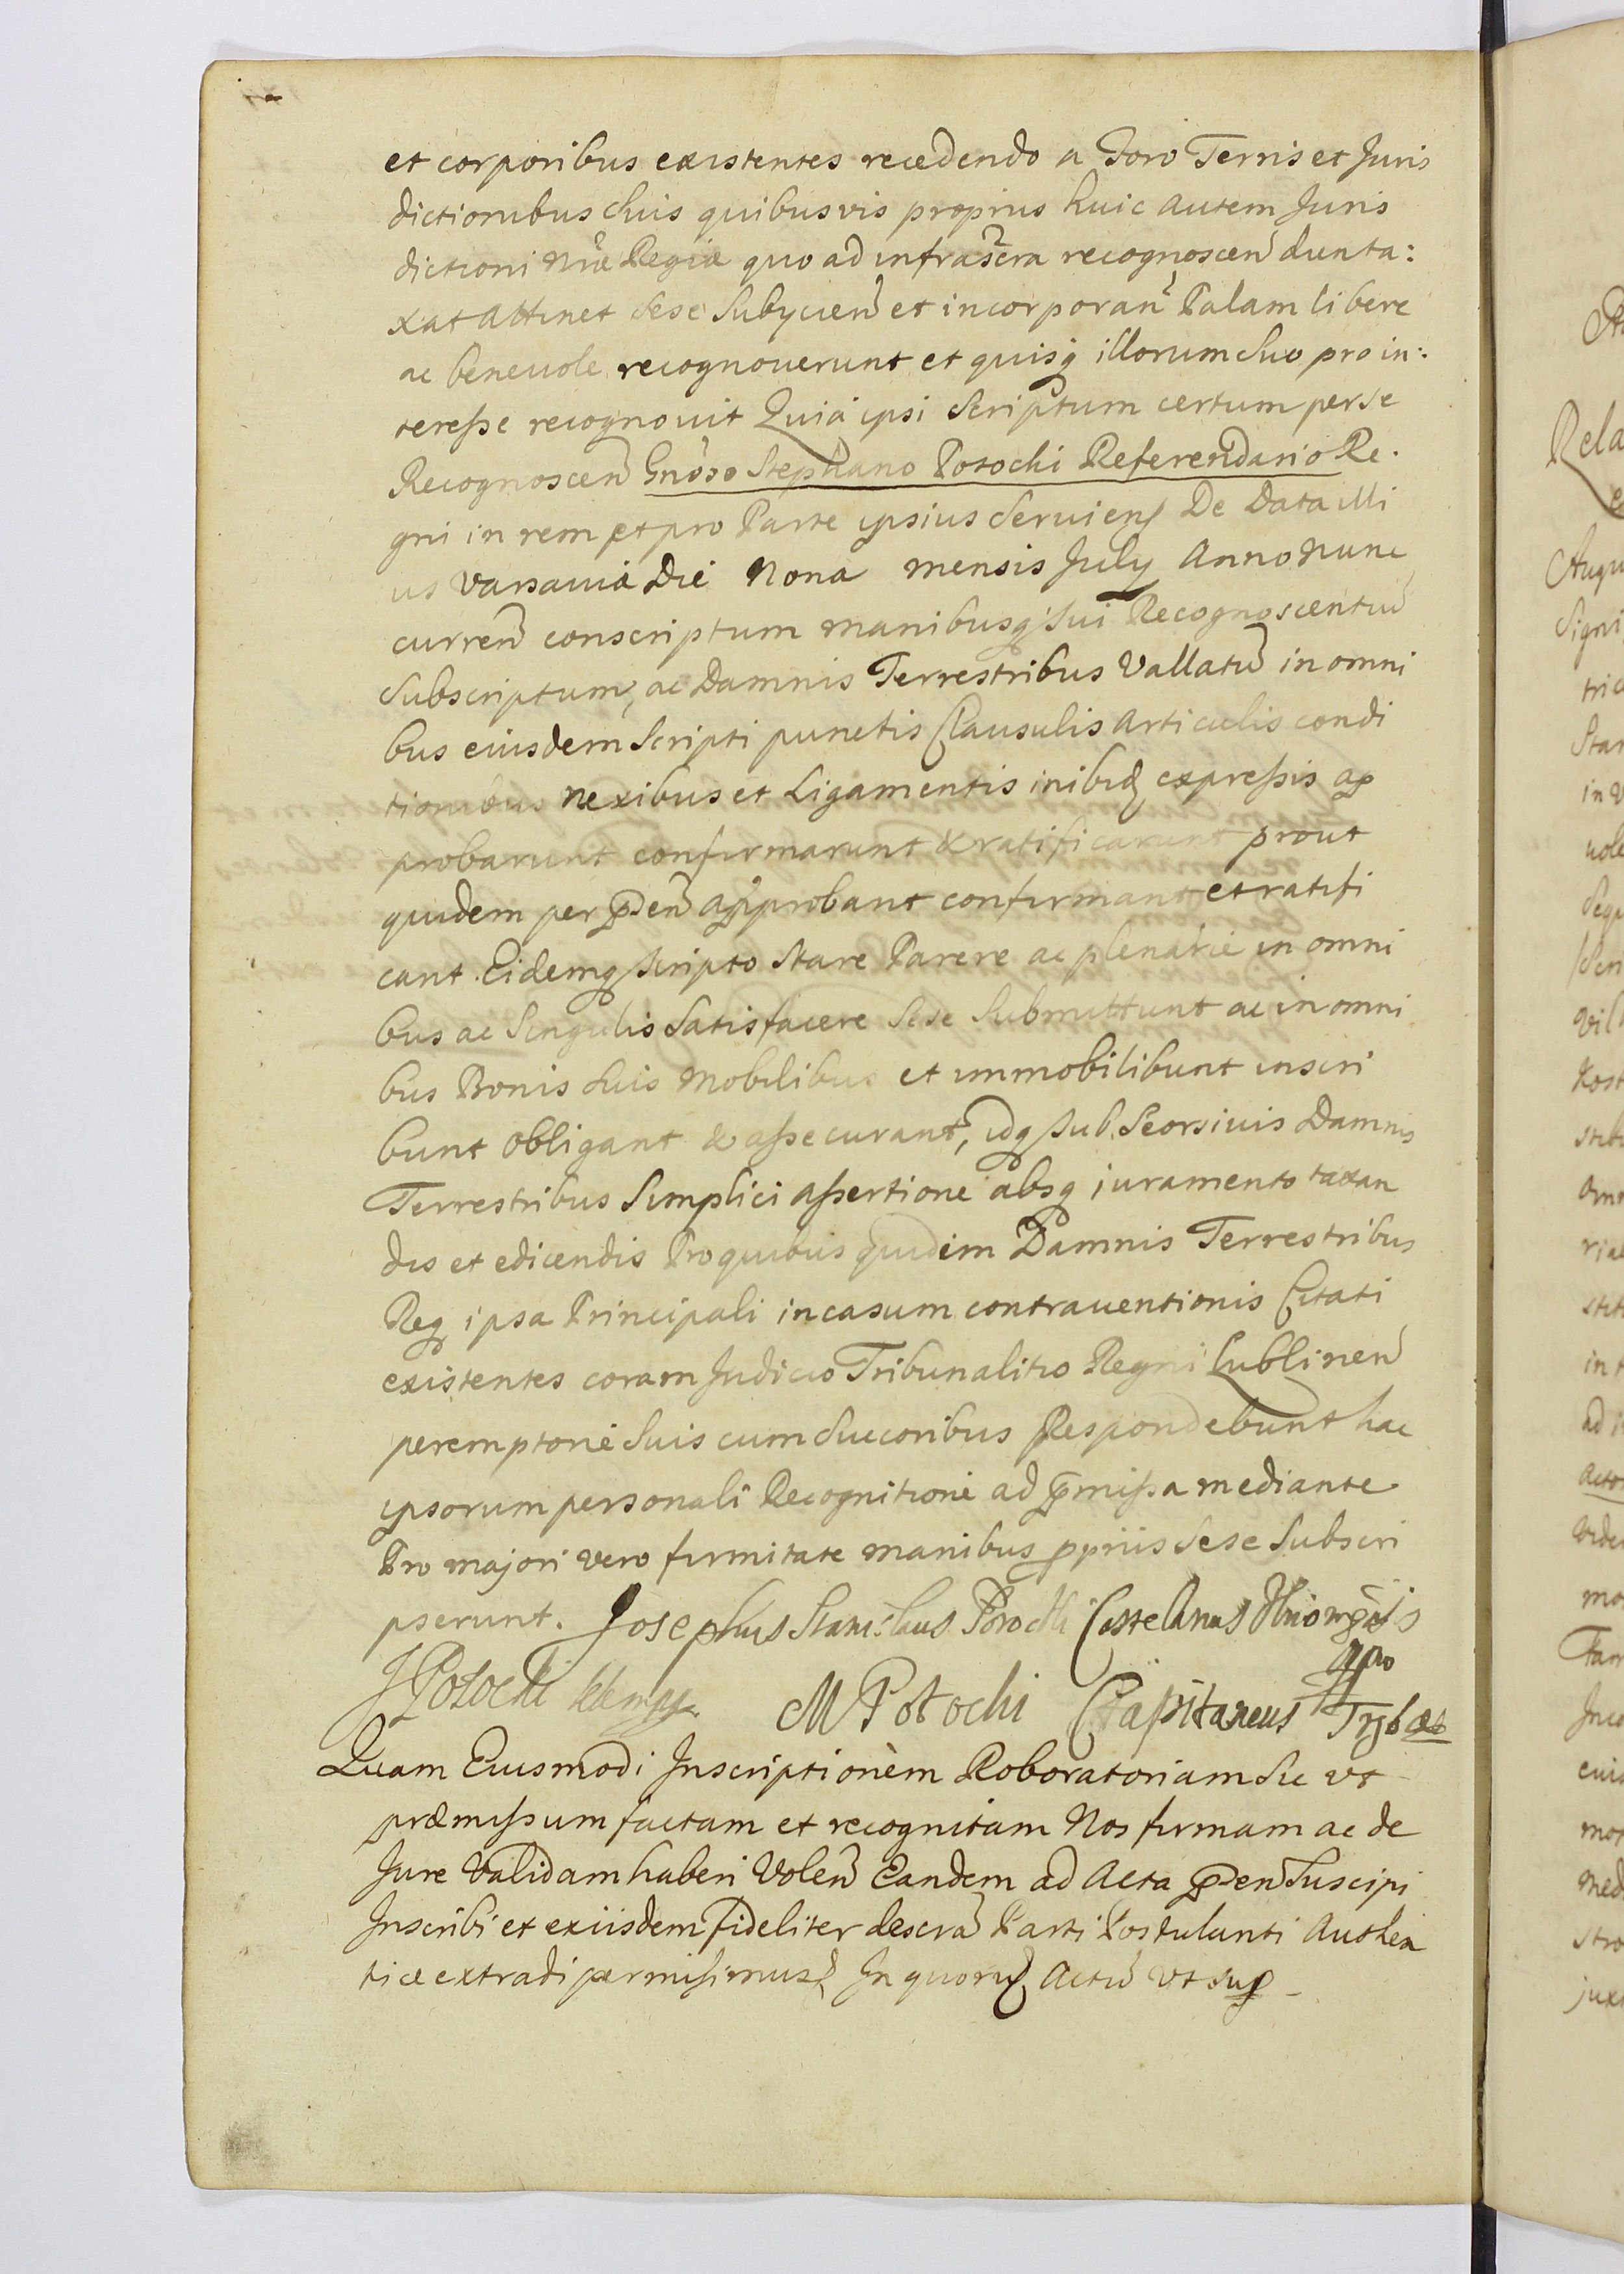 et corporibus existentes recedendo a Foro Terris et Juris
dictionibus suis quibusvis proprius huic autem Juris
dictioni nrae Regiae quo ad infrascra recognoscen dunta:
xat attinet sese Subycien et incorporan Palam libere
ac beneuole recognouerunt et quisq illorum suo pro in:
teresse recognouit Quia ipsi Scriptum certum per se
Recognoscen Gnoso Stephano Potochi Referendario Re.
gni in rem et pro Parte ipsius Seruiens De Data illi
us Varsauia Die Nona mensis July Anno Nunc
curren conscriptum manibusq sui Recognoscentiu
Subscriptum, ac Damnis Terrestribus Vallatu in omni
bus eiusdem Scripti punctis Clausulis articulis condi
tionibus nexibus et Ligamentis inibiq expressis ap
probarunt confirmarunt & ratificarunt prout
quidem per pden approbant confirmant et ratifi
cant. Eidemq scripto stare Parere ac plenarie in omni
bus ac Singulis Satisfacere sese Submittunt ac in omni
bus Bonis suis Mobilibus et immobilibunt inscri
bunt obligant & assecurant, idq sub Seorsiuis Damnis
Terrestribus Simplici assertione absq juramento taxan
dis et edicendis Pro quibus quidem Damnis Terrestribus
Req ipsa Principali in casum contrauentionis Citati
existentes coram Judicio Tribunalitio Regni Lublinen
peremptorie suis cum Succoribus Respondebunt hac
ipsorum personali Recognitione ad pmissa mediante
Pro majori vero firmitate manibus ppriis sese Subscri
pserunt. Josephus Stanislaus Potochi Castelanus
J Potocki M Potochi Capitaneus
Quam Eiusmodi Inscriptionem Roboratoriam Sic vt
praemissum factam et recognitam Nos firmam ac de
Jure Validam haberi Volen Eandem ad Acta pden Suscipi
Inscribi et exiisdem fideliter descra Parti Postulanti Authen
tice extradi permisimus, In quoru Actu vt sup